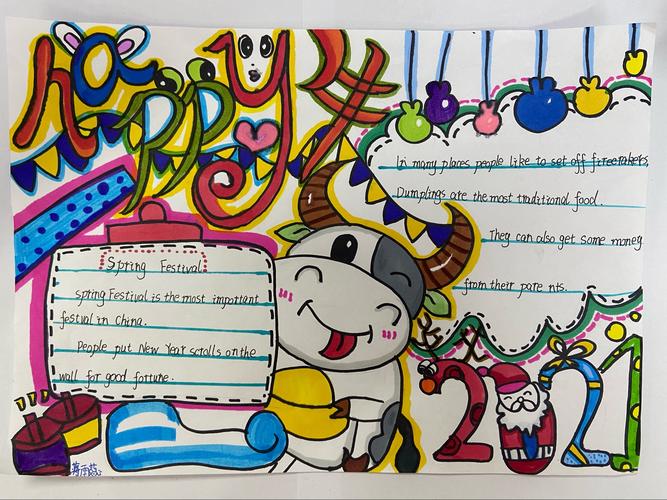 happy 牛
In many places people like to set off firecrakers,
Dumplings are the most traditional food.
They can also get some money
from their pare nts.
Spring Festival
spring Festival is the most important
festval in China.
People put New Year scrolls on the
wall for good fortune.
2021